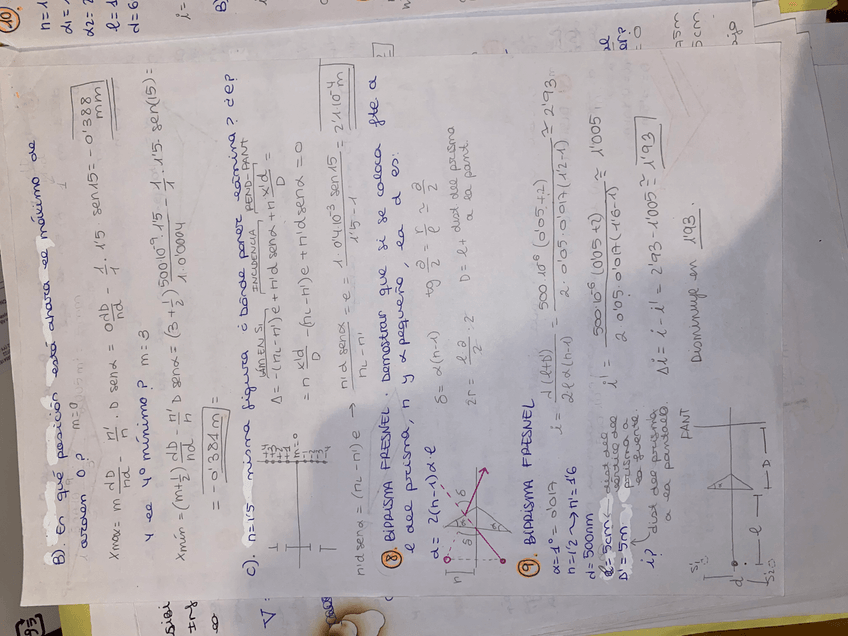 B). En qué posición está ahora el máximo de
orden 0? m=0
xmax = m dD/nd - n'/n · D senα = 0 dD/nd - 1/1 · 1'5 sen15 = -0'388 mm
y el 4º mínimo? m=3
xmín = (m+1/2) dD/nd - n'/n D senα = (3+1/2) 500·10⁻⁹·1'5/1·0'0004 - 1/1 · 1'5 · sen(15) =
= -0'381m =
c). n=1'5 misma figura ¿Dónde poner lámina? ¿e?
LÁM. EN S1 INCIDENCIA REND-PANT
Δ = -(nL-n')e + n'd senα + n x'd/D =
= n x'd/D - (nL-n')e + n'd senα = 0
+4
+3
+2
+1
m=0
-1
-2
-3
-4
n'd senα = (nL-n')e → n'd senα/nL-n' = e = 1·0'4·10⁻³ sen15/1'5-1 = 2'1·10⁻⁴ m
8. BIPRISMA FRESNEL. Demostrar que si se coloca fte a
l del prisma, n y α pequeño, la d es:
d = 2(n-1)α l
δ = α(n-1) tg a/2 = r/l ≃ a/2
2r = l a/2 · 2 D = l + dist del prisma
a la pant
9. BIPRISMA FRESNEL
α=1º=0'017
n=1'2 → n'=1'6
d=500nm
l=5cm → dist del
vértice del
prisma a
la fuente
D'=5m
dist del prisma
a la pantalla
i?
i = λ(l+D)/2lα(n-1) = 500·10⁻⁶(0'05+2)/2·0'05·0'017(1'2-1) ≃ 2'93
i' = 500·10⁻⁶(0'05+2)/2·0'05·0'017(1'6-1) ≃ 1'005
Δi = i - i' = 2'93 - 1'005 ≃ 1'93
Disminuye en 1'93.
PANT
S1
d
S2
l
D
10.